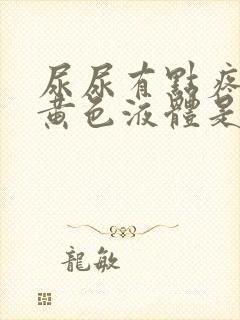 尿尿有點疼
黃色液體是
龍敏